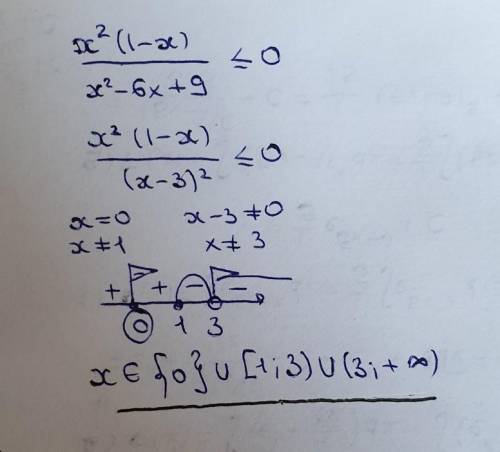 x² (1-x) / x² - 6x + 9 ≤ 0
x² (1-x) / (x-3)² ≤ 0
x=0 x-3≠0
x≠1 x≠3
+ + - -
0 1 3
x ∈ {0} ∪ [1; 3) ∪ (3; +∞)